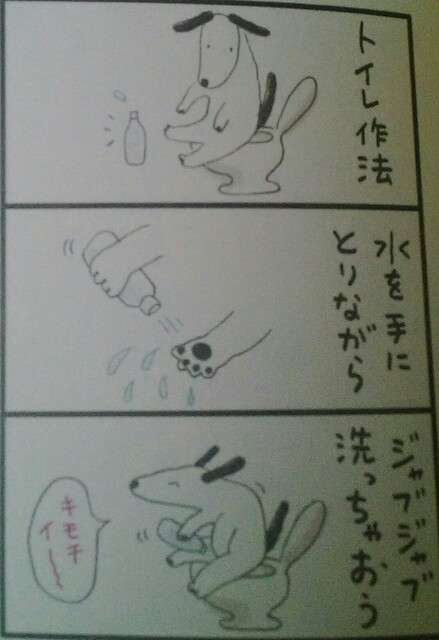 トイレ作法
水を手に
とりながら
ジャブジャブ
洗っちゃおう
キモチ
イ〜